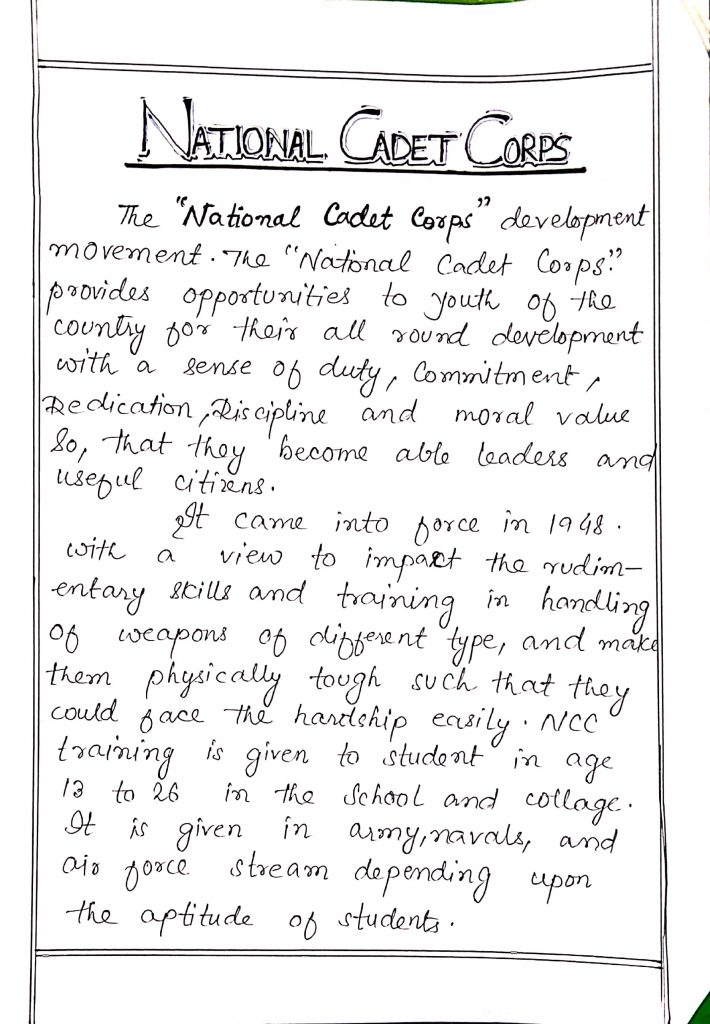 NATIONAL CADET CORPS
The "National Cadet Corps" development
movement. The "National Cadet Corps."
provides opportunities to youth of the
country for their all round development
with a sense of duty, Commitment,
Dedication, Discipline and moral value
So, that they become able leaders and
useful citizens.
It came into force in 1948.
with a view to impact the rudim-
entary skills and training in handling
of weapons of different type, and make
them physically tough such that they
could face the hardship easily. NCC
training is given to student in age
13 to 26 in the School and collage.
It is given in army, navals, and
air force stream depending upon
the aptitude of students.